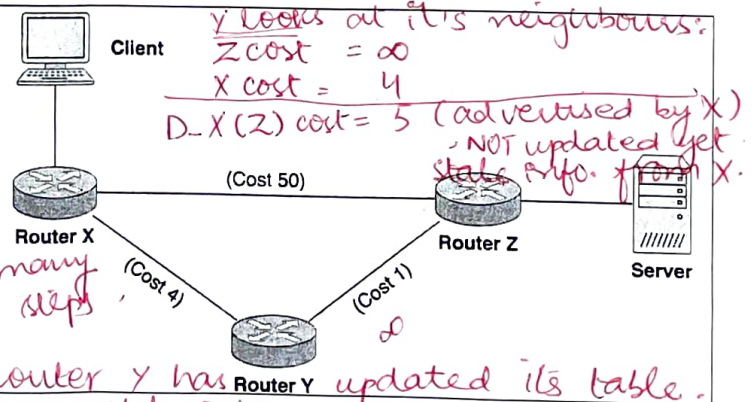 Y looks at it's neighbours:
Client
Z cost = ∞
X cost = 4
D_X(Z) cost = 5 (advertised by X)
- NOT updated yet
stale info. from X.
(Cost 50)
Router X
Router Z
Server
many
steps.
(Cost 4)
(Cost 1)
∞
Router Y
router Y has updated its table.